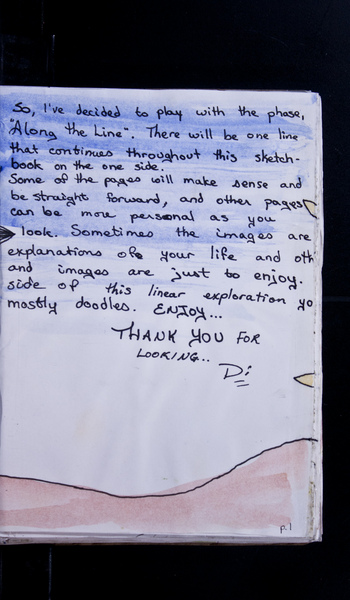 So, I've decided to play with the phase,
"Along the Line". There will be one line
that continues throughout this sketch-
book on the one side.
Some of the pages will make sense and
be straight forward, and other pages
can be more personal as you
look. Sometimes the images are
explanations of your life and oth
and images are just to enjoy.
side of this linear exploration yo
mostly doodles. ENJOY...
THANK YOU FOR
LOOKING..
Di
p.1